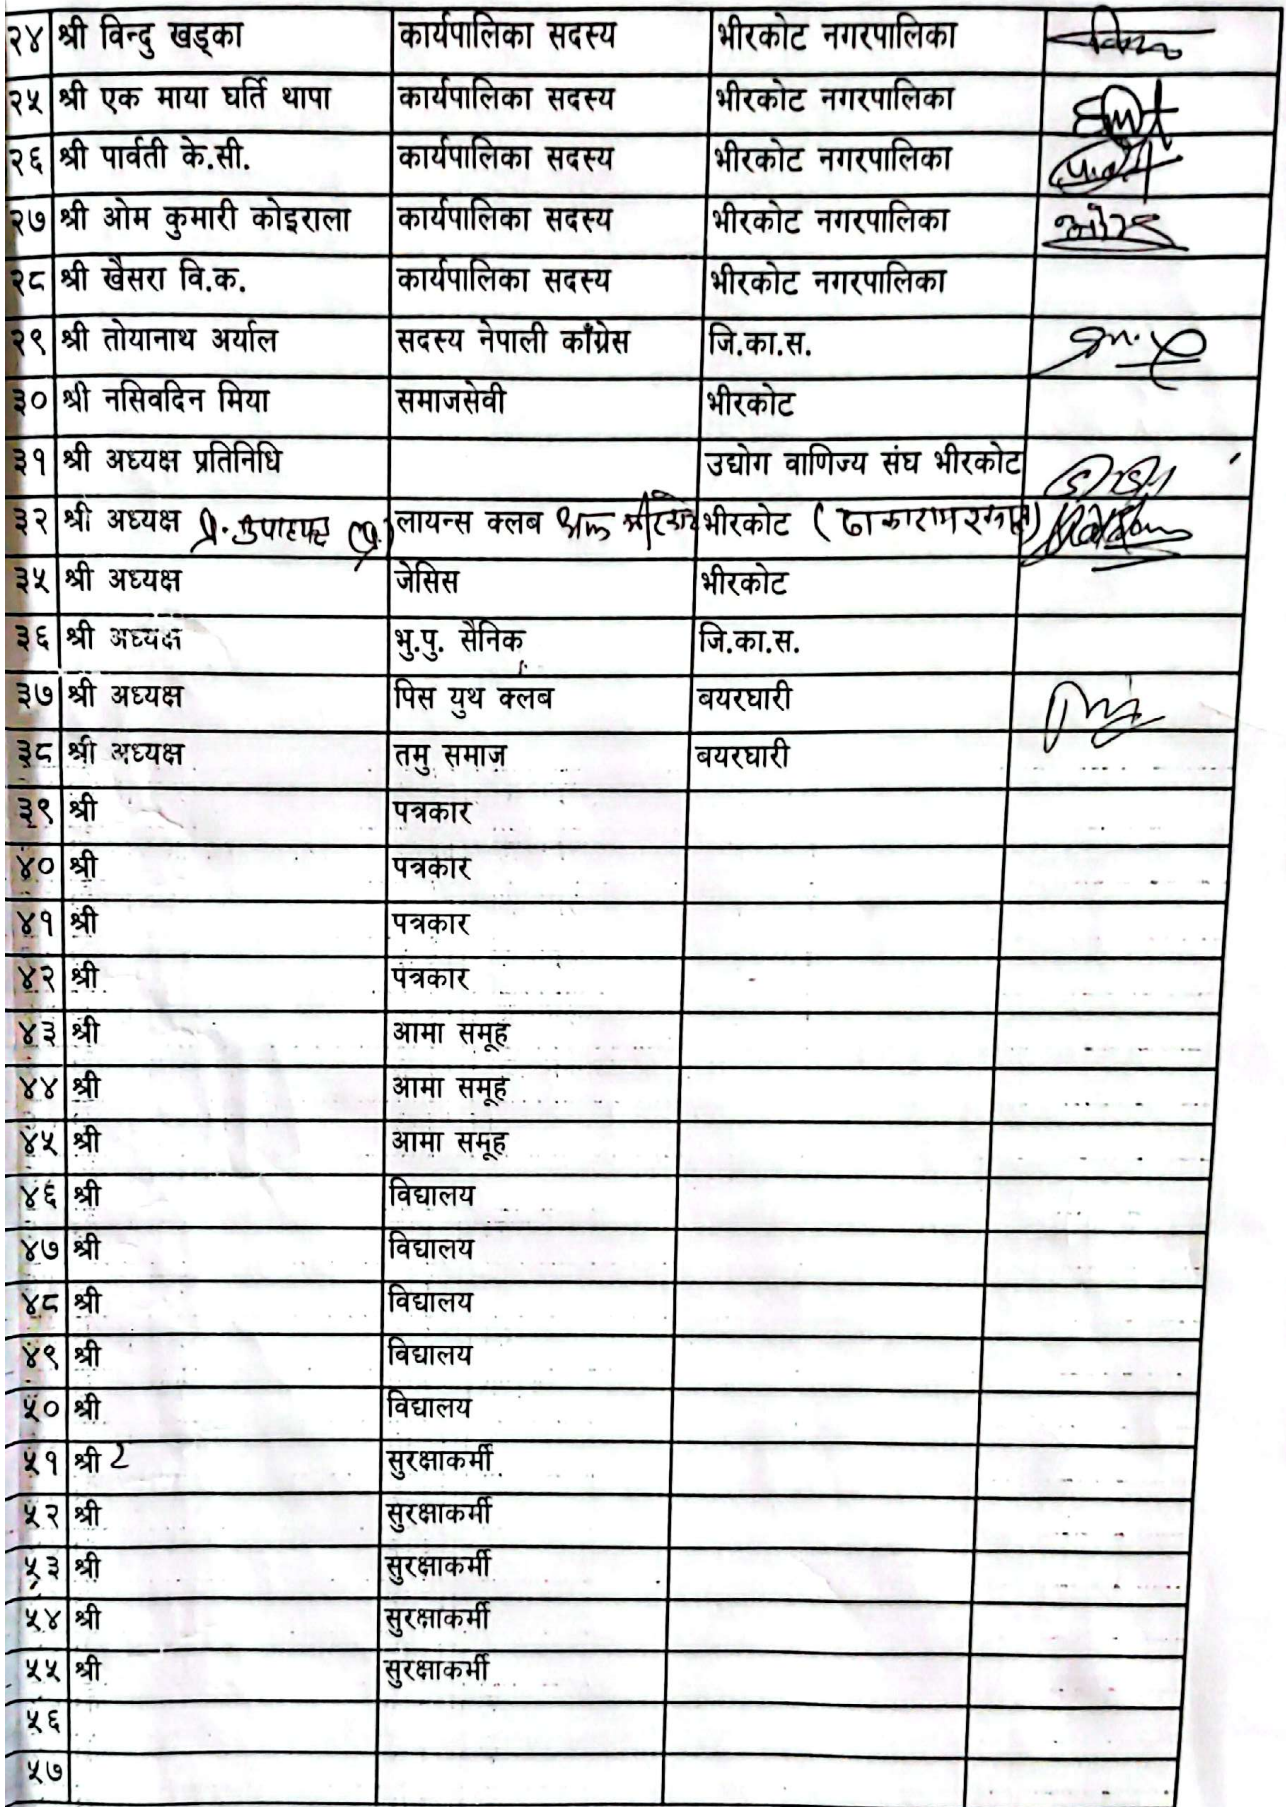 २४ श्री विन्दु खड्का कार्यपालिका सदस्य भीरकोट नगरपालिका
२५ श्री एक माया घर्ति थापा कार्यपालिका सदस्य भीरकोट नगरपालिका
२६ श्री पार्वती के.सी. कार्यपालिका सदस्य भीरकोट नगरपालिका
२७ श्री ओम कुमारी कोइराला कार्यपालिका सदस्य भीरकोट नगरपालिका
२८ श्री खैसरा वि.क. कार्यपालिका सदस्य भीरकोट नगरपालिका
२९ श्री तोयानाथ अर्याल सदस्य नेपाली काँग्रेस जि.का.स.
३० श्री नसिवदिन मिया समाजसेवी भीरकोट
३१ श्री अध्यक्ष प्रतिनिधि उद्योग वाणिज्य संघ भीरकोट
३२ श्री अध्यक्ष लायन्स क्लब भीरकोट
३५ श्री अध्यक्ष जेसिस भीरकोट
३६ श्री अध्यक्ष भु.पु. सैनिक जि.का.स.
३७ श्री अध्यक्ष पिस युथ क्लब बयरघारी
३८ श्री अध्यक्ष तमु समाज बयरघारी
३९ श्री पत्रकार
४० श्री पत्रकार
४१ श्री पत्रकार
४२ श्री पत्रकार
४३ श्री आमा समूह
४४ श्री आमा समूह
४५ श्री आमा समूह
४६ श्री विद्यालय
४७ श्री विद्यालय
४८ श्री विद्यालय
४९ श्री विद्यालय
५० श्री विद्यालय
५१ श्री सुरक्षाकर्मी
५२ श्री सुरक्षाकर्मी
५३ श्री सुरक्षाकर्मी
५४ श्री सुरक्षाकर्मी
५५ श्री सुरक्षाकर्मी
५६
५७